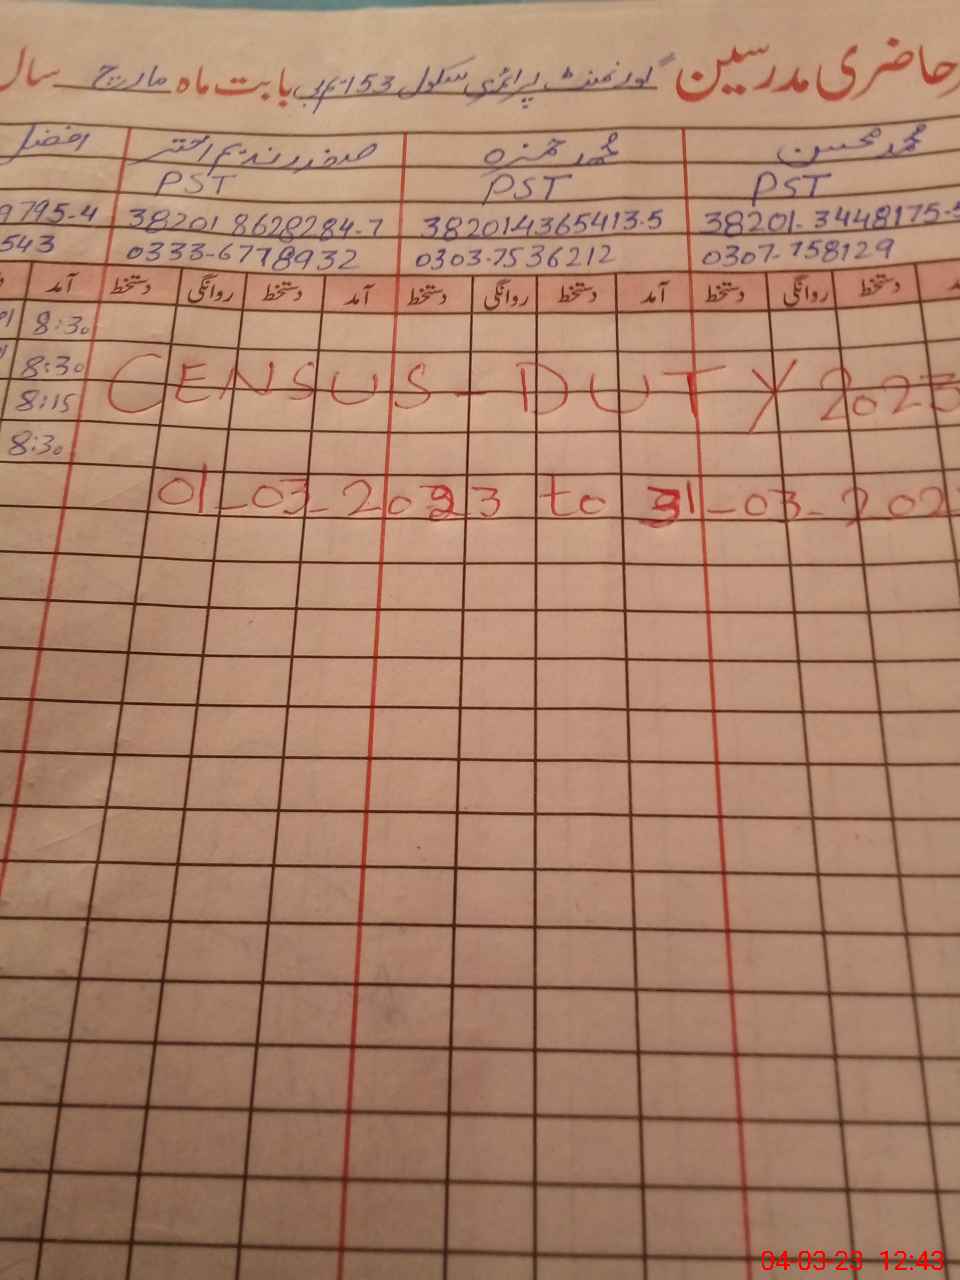 حاضری مدرسین گورنمنٹ پرائمری سکول 153 بابت ماہ مارچ سال
محمد محسن محمد حمزہ صفدر ندیم اختر افضل
PST PST PST
9795-4 38201 8628284-7 38201-4365413-5 38201-3448175-5
543 0333-6778932 0303-7536212 0307-758129
آمد دستخط روانگی دستخط آمد دستخط روانگی دستخط آمد دستخط روانگی دستخط
8:30
8:30 CENSUS - DUTY 2023
8:15
8:30
01-03-2023 to 31-03-202
04-03-23 12:43